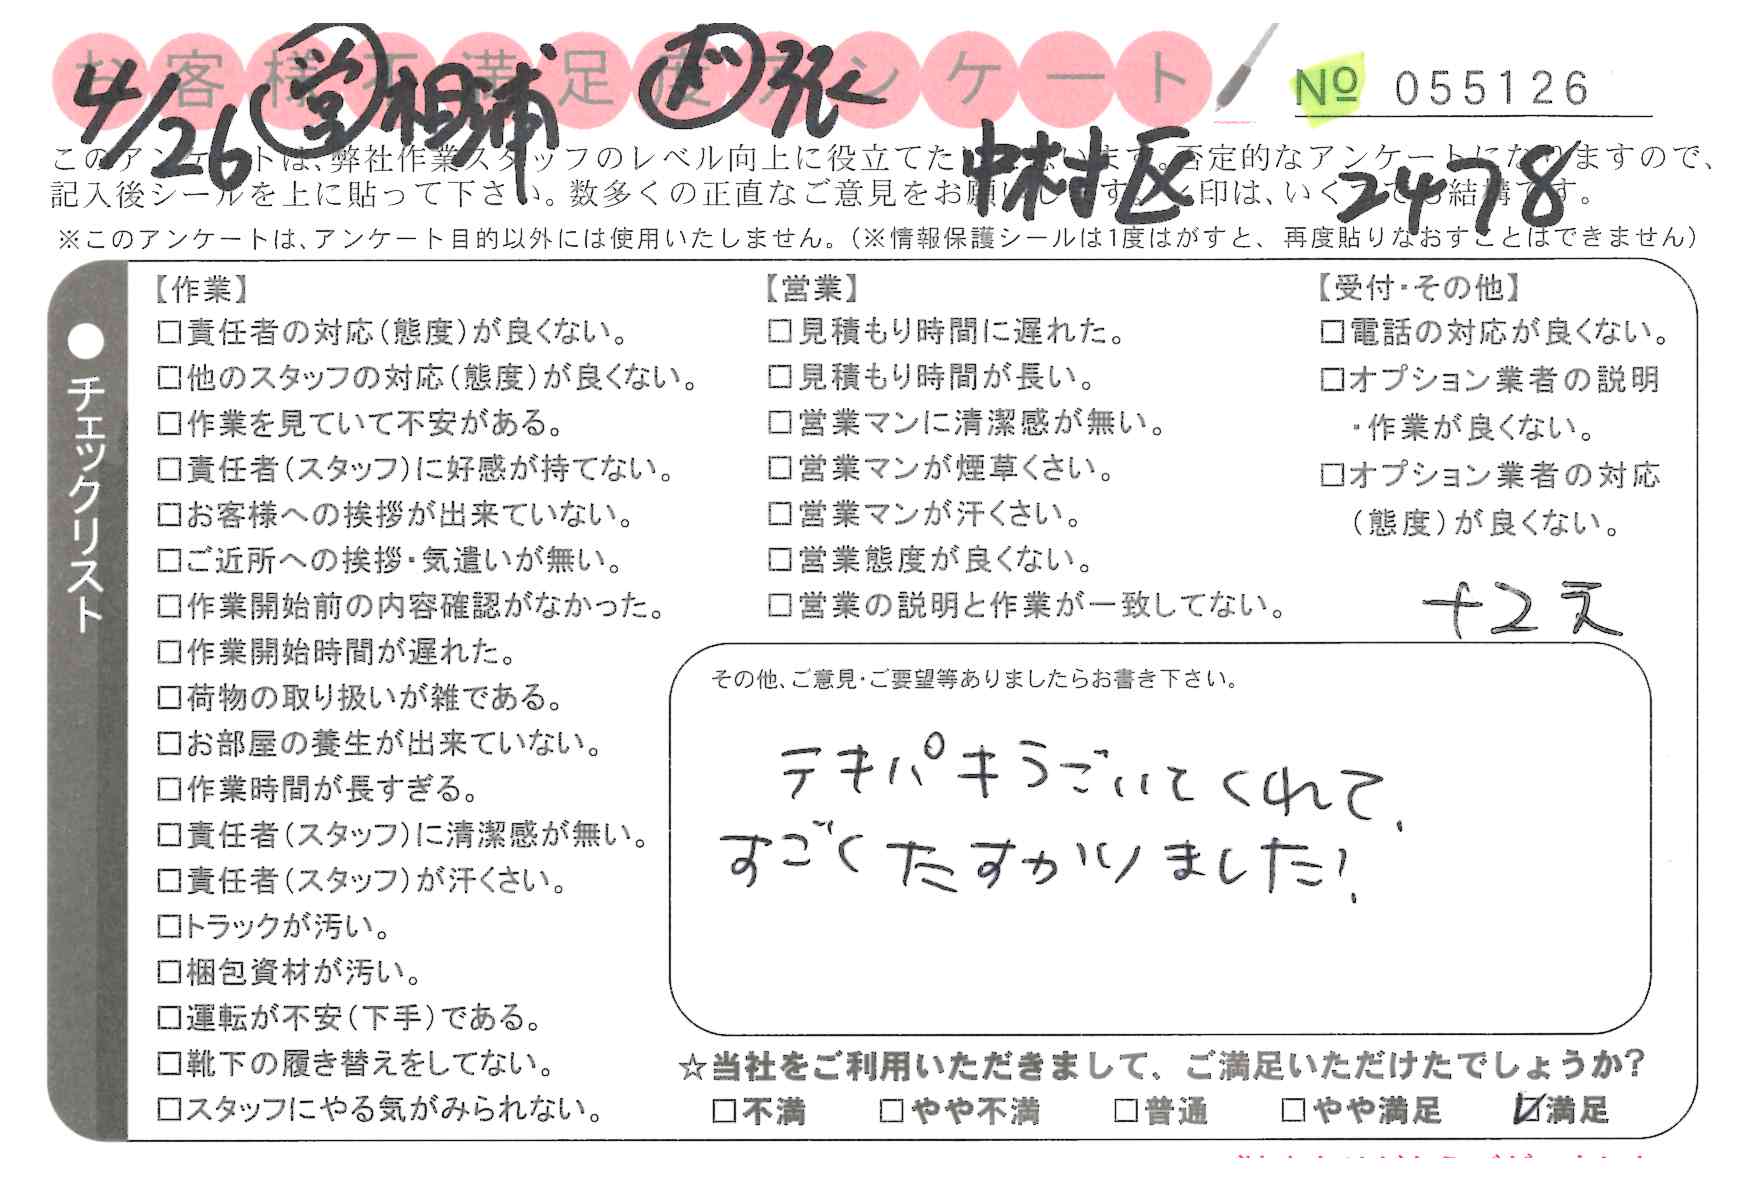 お客様不満足度アンケート
No 055126
4/26 営 相浦 ド 張
中村区 2478
このアンケートは、弊社作業スタッフのレベル向上に役立てたいと思います。否定的なアンケートになりますので、
記入後シールを上に貼って下さい。数多くの正直なご意見をお願いします。レ印は、いくつでも結構です。
※このアンケートは、アンケート目的以外には使用いたしません。（※情報保護シールは1度はがすと、再度貼りなおすことはできません）
●チェックリスト
【作業】
□責任者の対応（態度）が良くない。
□他のスタッフの対応（態度）が良くない。
□作業を見ていて不安がある。
□責任者（スタッフ）に好感が持てない。
□お客様への挨拶が出来ていない。
□ご近所への挨拶・気遣いが無い。
□作業開始前の内容確認がなかった。
□作業開始時間が遅れた。
□荷物の取り扱いが雑である。
□お部屋の養生が出来ていない。
□作業時間が長すぎる。
□責任者（スタッフ）に清潔感が無い。
□責任者（スタッフ）が汗くさい。
□トラックが汚い。
□梱包資材が汚い。
□運転が不安（下手）である。
□靴下の履き替えをしてない。
□スタッフにやる気がみられない。
【営業】
□見積もり時間に遅れた。
□見積もり時間が長い。
□営業マンに清潔感が無い。
□営業マンが煙草くさい。
□営業マンが汗くさい。
□営業態度が良くない。
□営業の説明と作業が一致してない。
【受付・その他】
□電話の対応が良くない。
□オプション業者の説明
・作業が良くない。
□オプション業者の対応
（態度）が良くない。
その他、ご意見・ご要望等ありましたらお書き下さい。
テキパキうごいてくれて、
すごくたすかりました！
☆当社をご利用いただきまして、ご満足いただけたでしょうか？
□不満 □やや不満 □普通 □やや満足 ☑満足